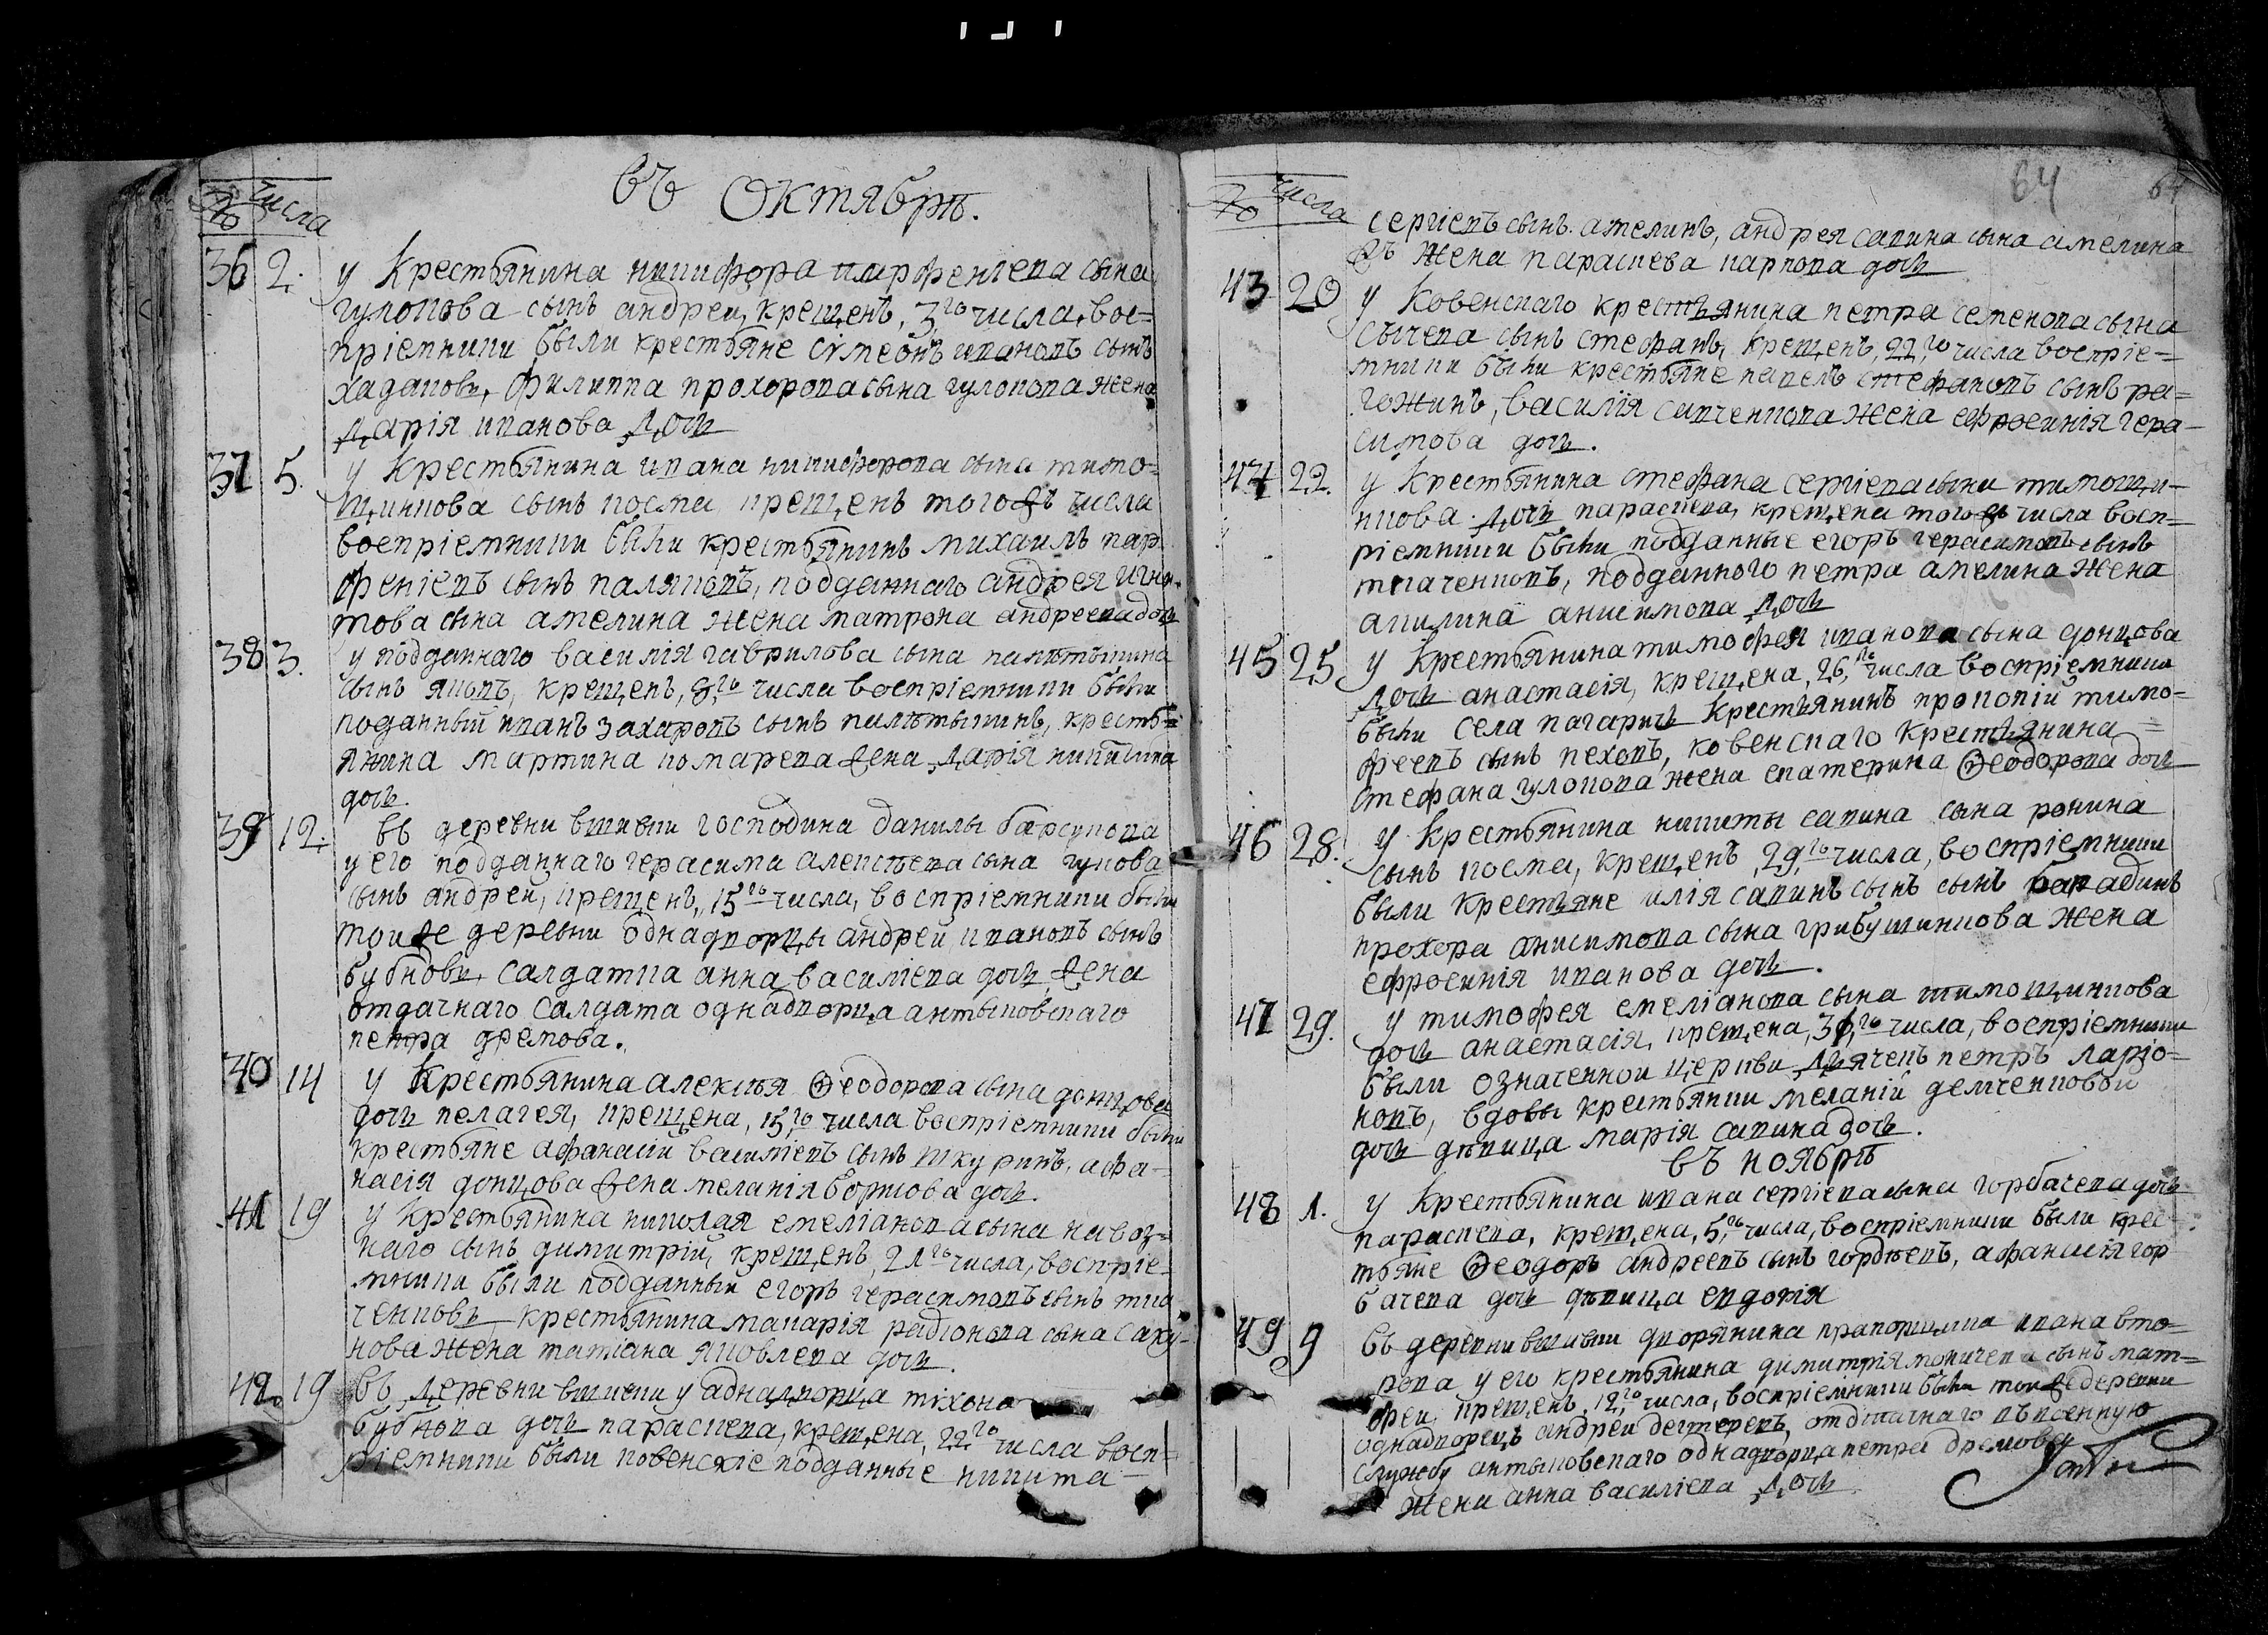 въ Октябрѣ.
№ числа
36 2. у Крестьянина никифора парфенгева сына
гулокова сынъ андреи, крещенъ, 3,го числа, вос=
пріемники были крестьяне сѵмеонъ ивановъ сынъ
хадаковъ, филиппа прохорова сына гулокова жена
дарія иванова дочь
37 5. у Крестьянина ивана никифорова сына тимо=
щинкова сынъ косма, крещенъ тогожъ числа
воспріемники были крестьянинъ михаилъ пар
феніевъ сынъ паляковъ, подданнаго андрея игна
това сына амелина жена матрона андреева дочь
38 3. у подданнаго василія гаврилова сына
сынъ яковъ, крещенъ, 8,го числа воспріемники были
поданный иванъ захоровъ сынъ крестья
янина мартина комарева жена дарія никитина
дочь.
39 12. въ деревни вшивки господина данилы барсукова
у его подданнаго герасима алексѣева сына гукова
сынъ андрей, крещенъ, 15го числа, воспріемники были
тоиже деревни однадворцы андрей ивановъ сынъ
бубновъ, салдатка анна василіева дочь жена
отдачнаго салдата однадворца антыковскаго
петра дремова.
40 14 у Крестьянина алексѣя Ѳеодорова сына донцова
дочь пелагея, крещена, 15,го числа воспріемники были
крестьяне афанасій василіевъ сынъ шкуринъ, афа=
насія донцова жена меланія борисова дочь.
41 19 у Крестьянина николая емеліанова сына навоз=
наго сынъ димитрій, крещенъ, 21го числа, воспріе=
мники были подданный егоръ герасимовъ сынъ тка
ченковъ крестьянина макарія радіонова сына саку=
нова жена татіана яковлева дочь.
42 19 въ деревни вшивки у аднадворца тіхона
бубнова дочь параскева, крещена, 22,го числа восп=
ріемники были ковенскіе подданные никита
64 64
№ числа
сергіевъ сынъ. амелинъ, андрея савина сына амелина
жъ жена параскева карпова дочь
43 20 у Ковенскаго крестьянина петра семенова сына
сычева сынъ стефанъ, крещенъ, 22,го числа воспріе=
мники были крестьяне павелъ стефановъ сынъ ра=
гожинъ, василія савченкова жена ефросинія гера=
симова дочь.
44 22. у Крестьянина стефана сергіева сына тимощи=
нкова дочь параскева, крещена тогожъ числа восп=
ріемники были подданные егоръ герасимовъ сынъ
ткаченковъ, подданного петра амелина жена
акилина анисимова дочь
45 25 у Крестьянина тимофея иванова сына донцова
дочь анастасія, крещена, 26,го числа воспріемники
были села пагаричь Крестьянинъ прокопій тимо=
феевъ сынъ пеховъ, ковенскаго крестьянина =
стефана гулокова жена екатерина Ѳеодорова дочь
46 28. у Крестьянина никиты савина сына ронина
сынъ косма, крещенъ, 29,го числа, воспріемники
были крестьяне илія савинъ сынъ сынъ
прохора анисимова сына грибушинкова жена
ефросинія иванова дочь.
47 29. у тимофея емеліанова сына тимощинкова
дочь анастасія, крещена, числа, воспріемники
были означенной церкви дьячекъ петръ ларіо=
новъ, вдовы крестьянки меланій демченковой
дочь дѣвица марія савина дочь.
въ ноябрѣ
48 1. у Крестьянина ивана сергіева сына горбачева дочь
параскева, крещена, 5,го числа, воспріемники были крес=
тьяне Ѳеодоръ андреевъ сынъ гордѣевъ, афанасія гор
бачева дочь дѣвица евдокія
49 9 въ деревни вшивки дворянина прапорщика ивана вто=
рова у его крестьянина димитрія сынъ мат=
феи, крещенъ, 12,го числа, воспріемники были тоиже деревни
однадворецъ андреи дегтеревъ, отдатнаго въ военную
службу антыковскаго однадворца петра дремова
жена анна василіева дочь